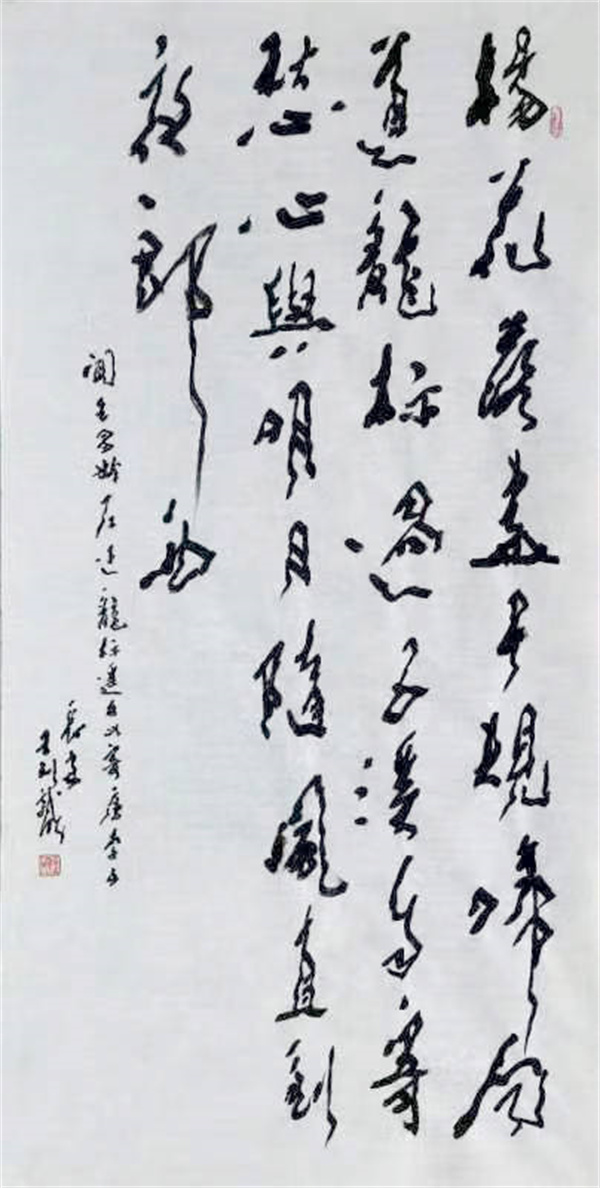 楊花落盡子規啼聞
道龍標過五溪我寄
愁心與明月隨風直到
夜郎西
聞王昌齡左遷龍標遙有此寄唐李白